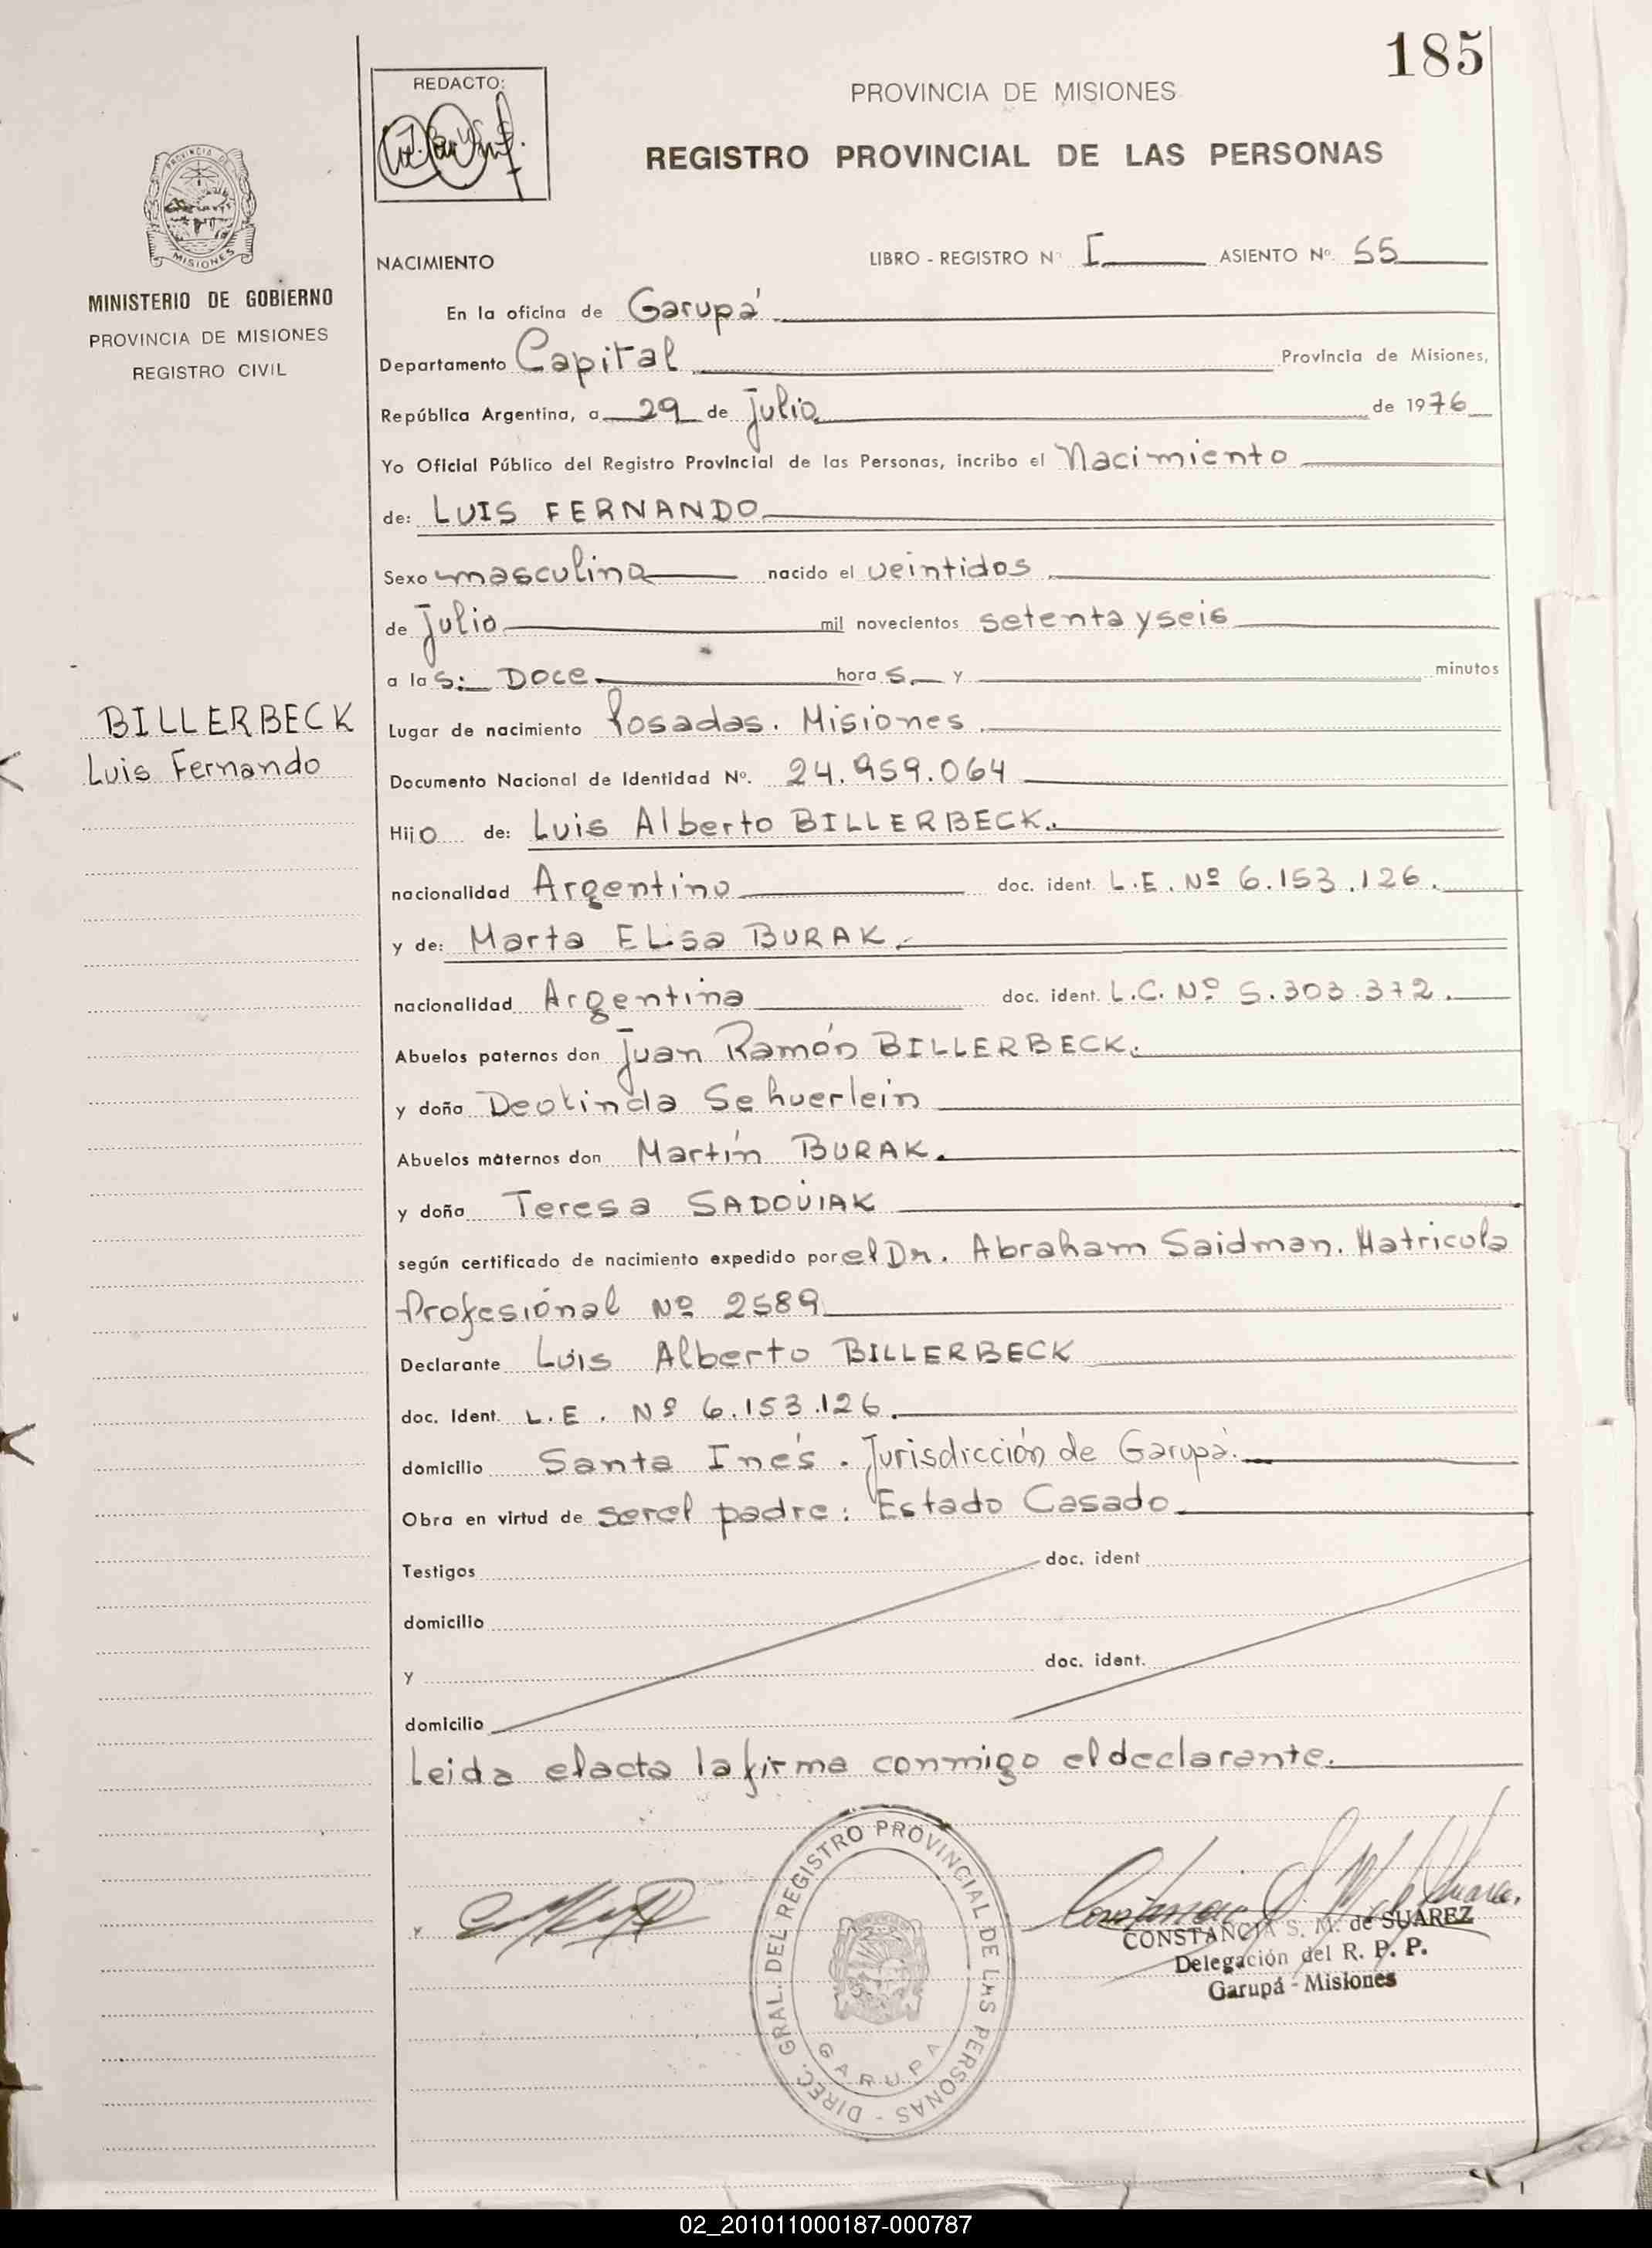 185
REDACTO:
PROVINCIA DE MISIONES
REGISTRO PROVINCIAL DE LAS PERSONAS
PROVINCIA DE
MISIONES
MINISTERIO DE GOBIERNO
PROVINCIA DE MISIONES
REGISTRO CIVIL
NACIMIENTO LIBRO - REGISTRO Nº I ASIENTO Nº. 55
En la oficina de Garupá
Departamento Capital Provincia de Misiones,
República Argentina, a 29 de Julio de 1976
Yo Oficial Público del Registro Provincial de las Personas, incribo el Nacimiento
de: LUIS FERNANDO
Sexo masculino nacido el veintidos
de Julio mil novecientos setenta y seis
a las: Doce horas y minutos
BILLERBECK
Luis Fernando
Lugar de nacimiento Posadas. Misiones
Documento Nacional de Identidad Nº. 24.959.064
Hijo de: Luis Alberto BILLERBECK.
nacionalidad Argentino doc. ident. L.E. Nº 6.153.126.
y de: Marta Elisa BURAK.
nacionalidad Argentina doc. ident. L.C. Nº 5.303.372.
Abuelos paternos don Juan Ramón BILLERBECK.
y doña Deolinda Sehuerlein
Abuelos maternos don Martín BURAK.
y doña Teresa SADOVIAK
según certificado de nacimiento expedido por el Dr. Abraham Saidman. Matricula
Profesional Nº 2589
Declarante Luis Alberto BILLERBECK
doc. Ident. L.E. Nº 6.153.126.
domicilio Santa Inés. Jurisdicción de Garupá.
Obra en virtud de ser el padre: Estado Casado
Testigos doc. ident
domicilio
y doc. ident.
domicilio
Leida el acta la firma conmigo el declarante.
DIREC. GRAL. DEL REGISTRO PROVINCIAL DE LAS PERSONAS -
GARUPA
CONSTANCIA S. M. de SUAREZ
Delegación del R. P. P.
Garupá - Misiones
02_201011000187-000787